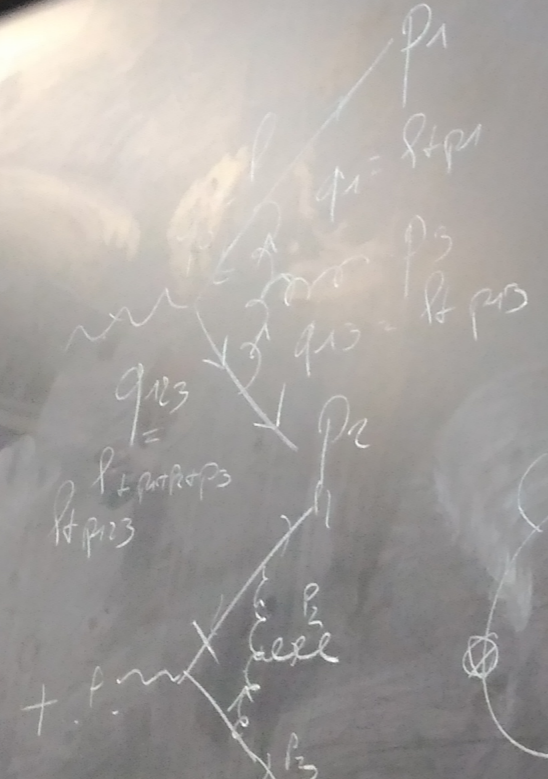 p1
l
q1 = l+p1
p3
q13 = l+p13
q123
=
l+p1+p2+p3
l+p123
p2
+
P3